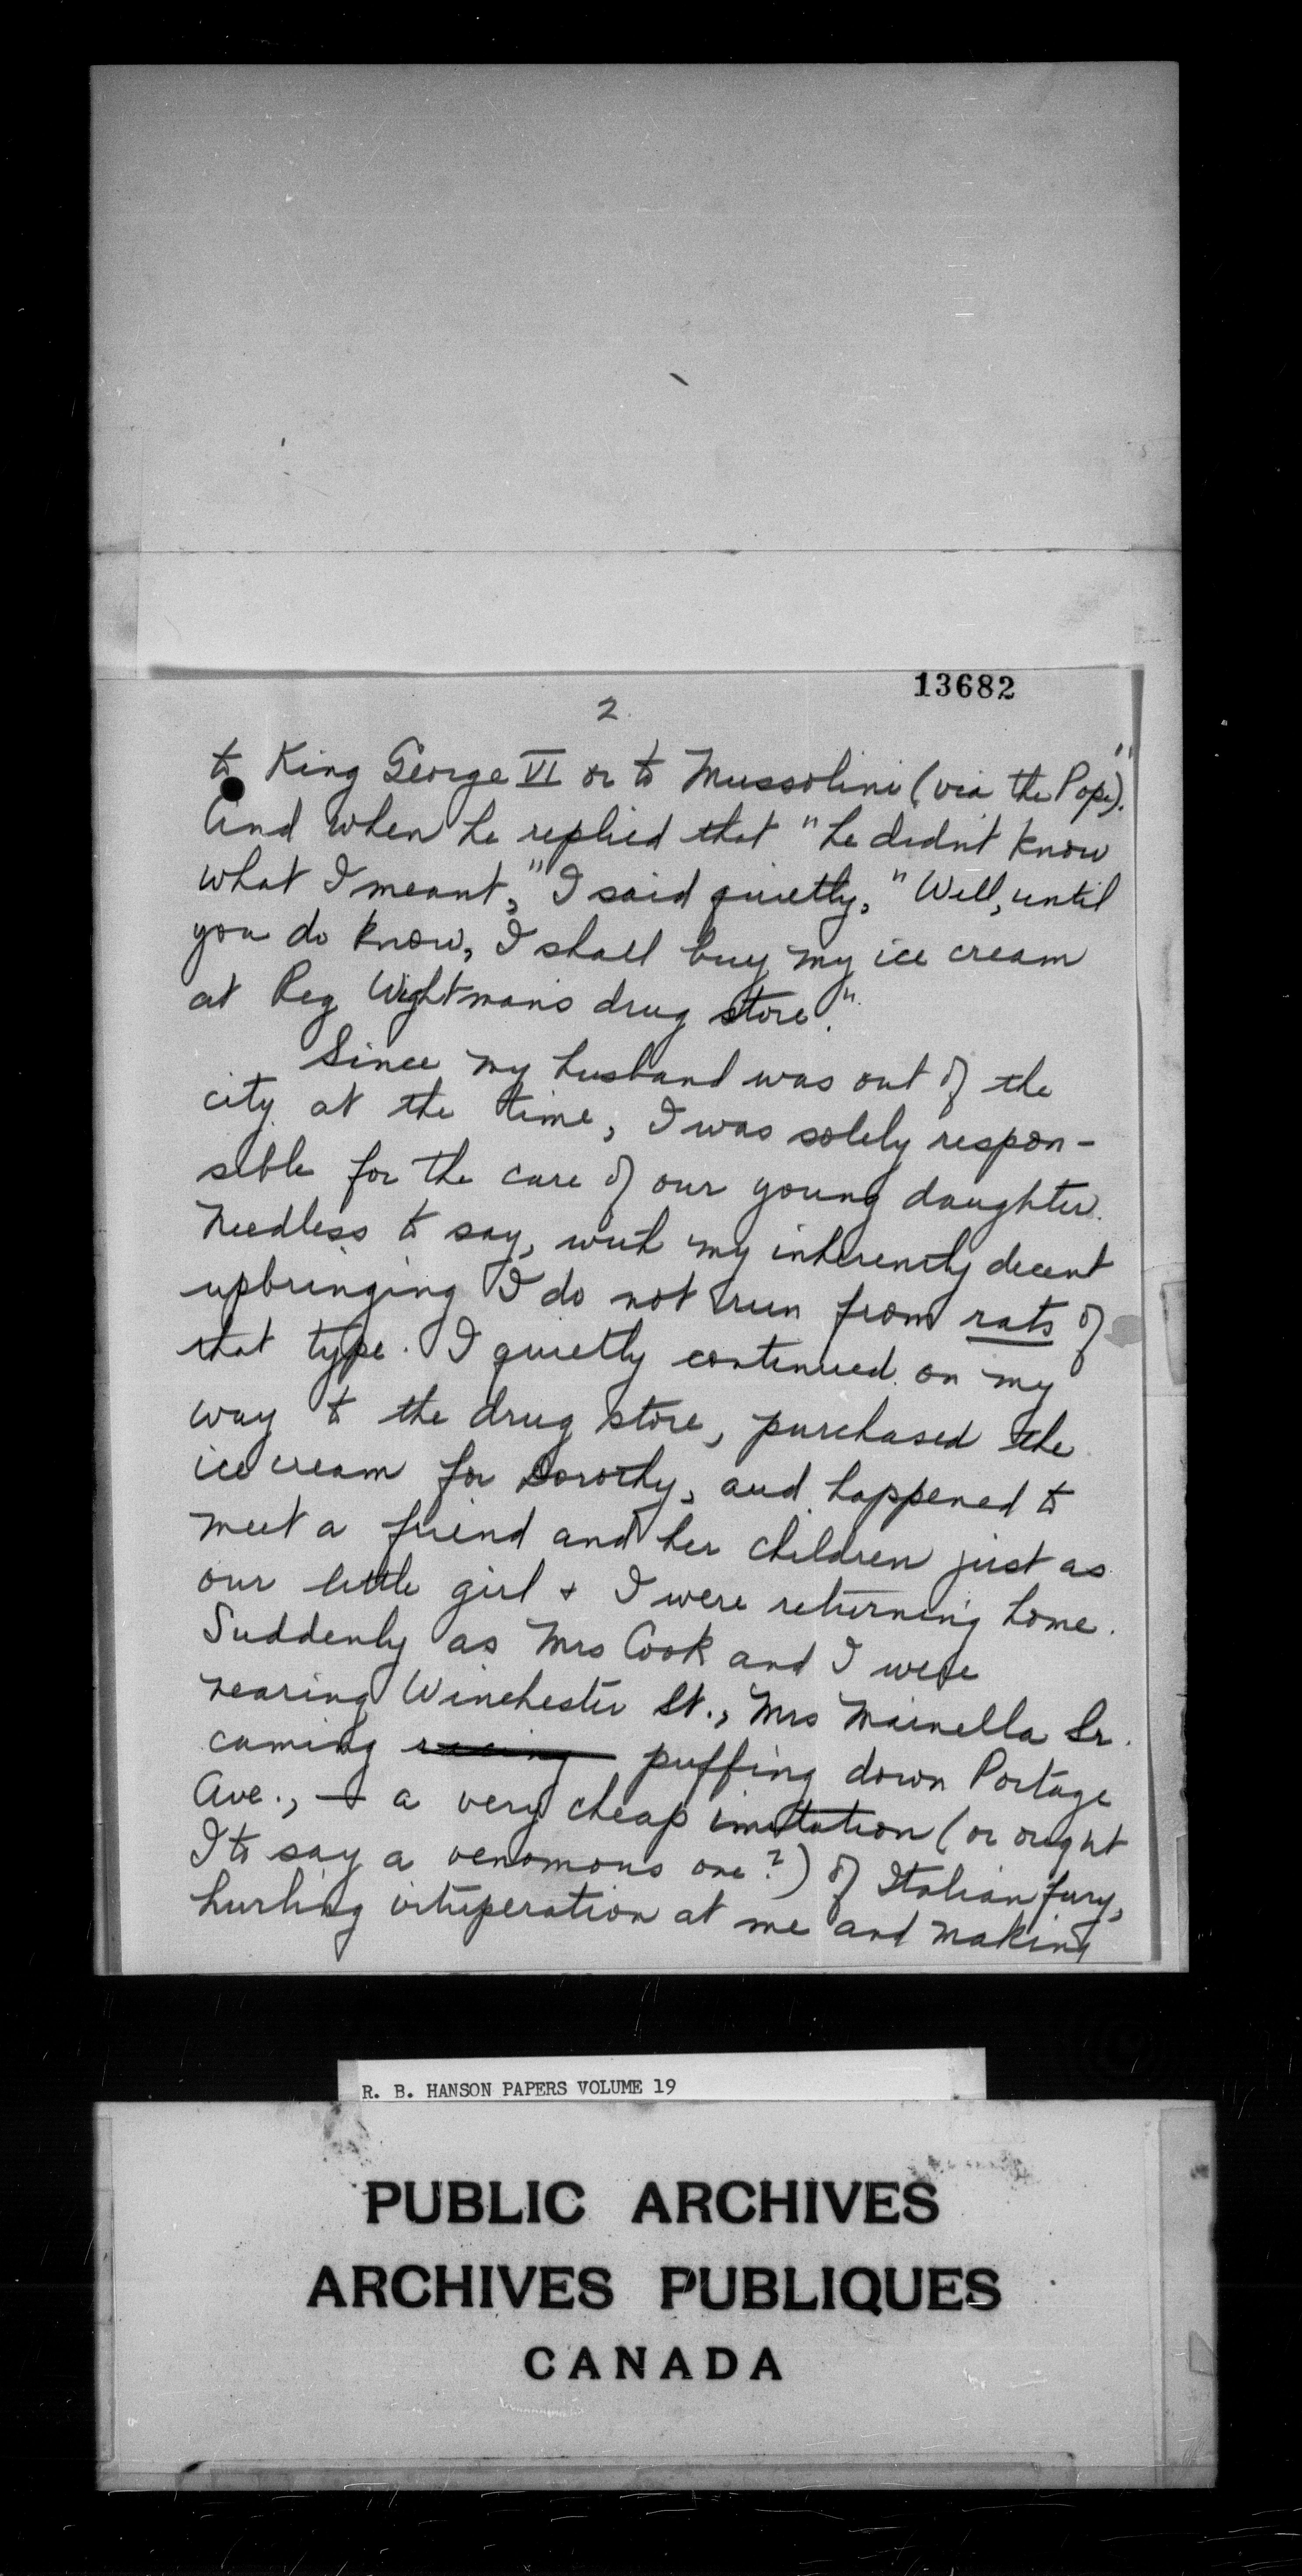 13682
2.
to King George VI or to Mussolini (via the Pope)."
And when he replied that "he didn't know
what I meant," I said quietly, "Well, until
you do know, I shall buy my ice cream
at Reg Wightman's drug store."
Since my husband was out of the
city at the time, I was solely respon-
sible for the care of our young daughter.
Needless to say, with my inherently decent
upbringing I do not run from rats of
that type. I quietly continued on my
way to the drug store, purchased the
ice cream for Dorothy, and happened to
meet a friend and her children just as
our little girl & I were returning home.
Suddenly as Mrs Cook and I were
nearing Winchester St., Mrs Mainella Sr.
coming racing puffing down Portage
Ave., — a very cheap imitation (or ought
I to say a venomous one?) of Italian fury,
hurling vituperation at me and making
R. B. HANSON PAPERS VOLUME 19
PUBLIC ARCHIVES
ARCHIVES PUBLIQUES
CANADA